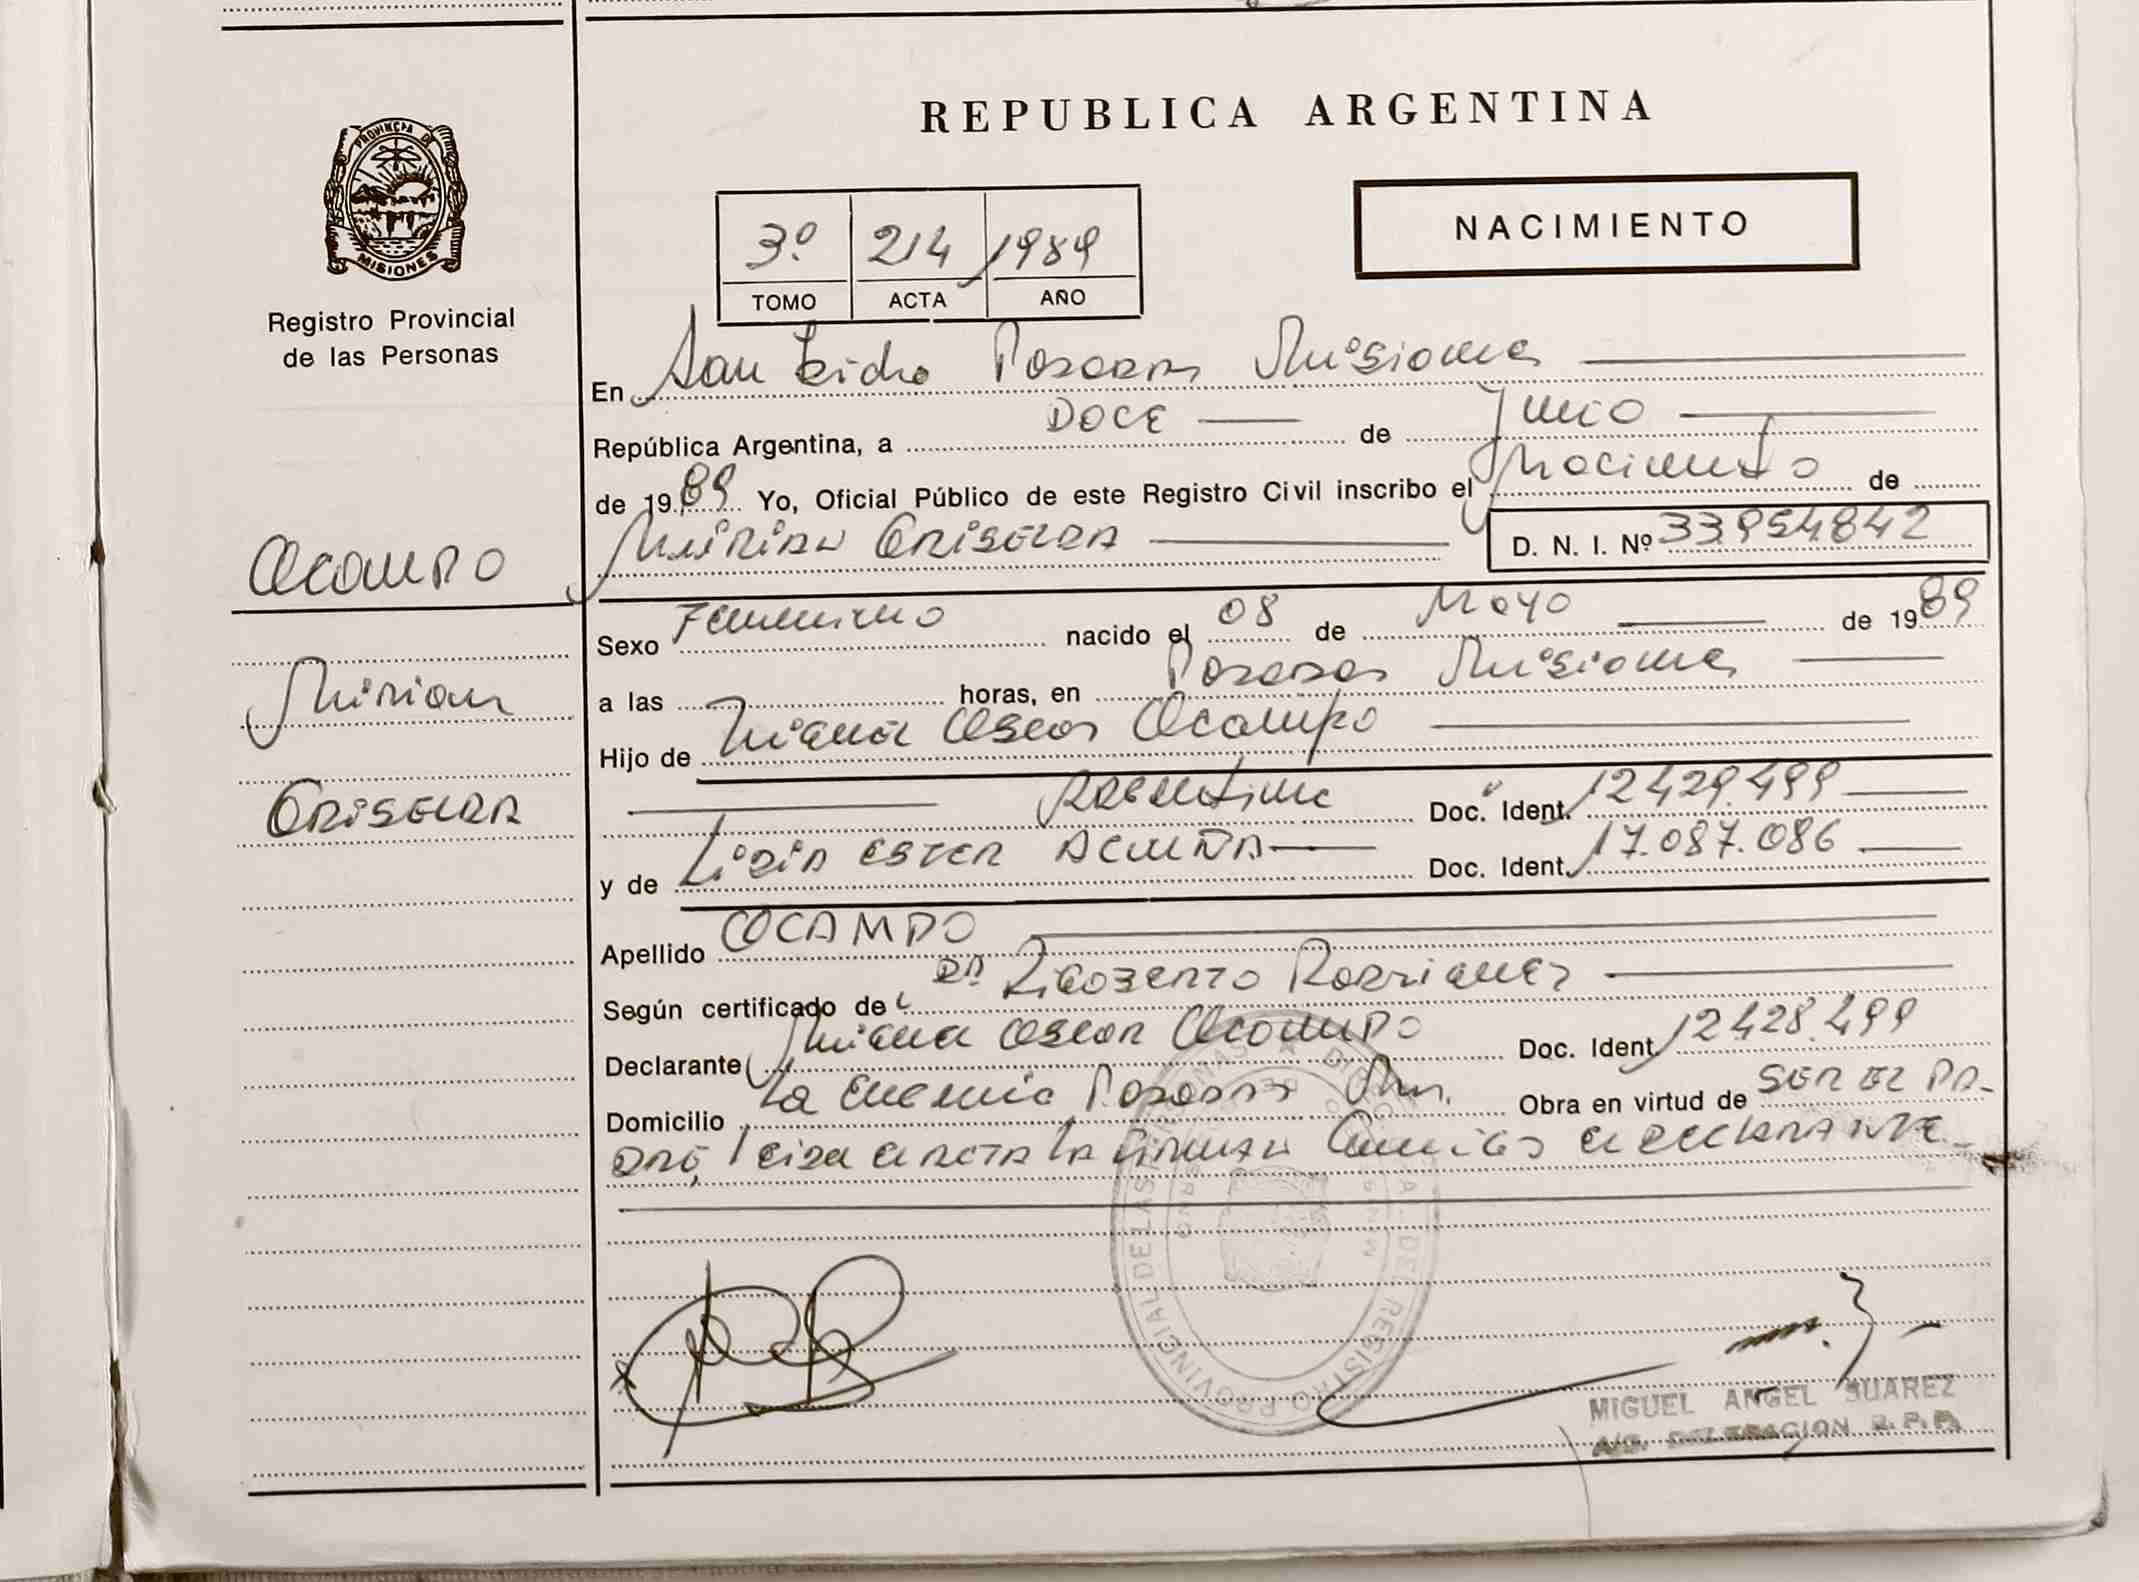 PROVINCIA DE
MISIONES
Registro Provincial
de las Personas
REPUBLICA ARGENTINA
NACIMIENTO
3º 214 1989
TOMO ACTA AÑO
En San Isidro Posadas Misiones
República Argentina, a DOCE de Junio
de 1989 Yo, Oficial Público de este Registro Civil inscribo el Nacimiento de
Ocampo
Mirian GRISELDA D. N. I. Nº 33954842
Sexo Femenino nacido el 08 de Mayo de 1989
Mirian
a las horas, en Posadas Misiones
Hijo de Miguel Oscar Ocampo
GRISELDA
Argentino Doc. Ident. 12429.499
y de ESTER ACUÑA Doc. Ident. 17.087.086
Apellido OCAMPO
Según certificado de DR Rigoberto Rodriguez
Declarante Miguel Oscar Ocampo Doc. Ident. 12428.499
Domicilio La Posadas Mnes. Obra en virtud de SER EL PA-
DRE, leida el ACTA LA FIRMAN Conmigo el DECLARANTE
REGISTRO PROVINCIAL DE LAS
MIGUEL ANGEL SUAREZ
A/C. DELEGACION R.P.P.